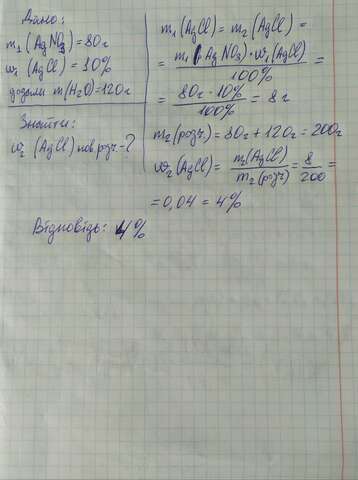 Дано:
m₁(AgNO₃)=80г
w₁(AgCl)=10%
додали m(H₂O)=120г
Знайти:
w₂(AgCl) нов розч-?
m₁(AgCl)=m₂(AgCl)=
= m₁(AgNO₃)·w₁(AgCl)/100% =
= 80г·10%/100% = 8г
m₂(розч.)=80г+120г=200г
w₂(AgCl)= m(AgCl)/m₂(розч) = 8/200 =
=0,04=4%
Відповідь: 4%